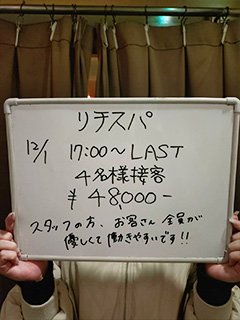 リチスパ
12/1 17:00～LAST
4名様接客
¥48,000-
スタッフの方、お客さん全員が
優しくて働きやすいです!!